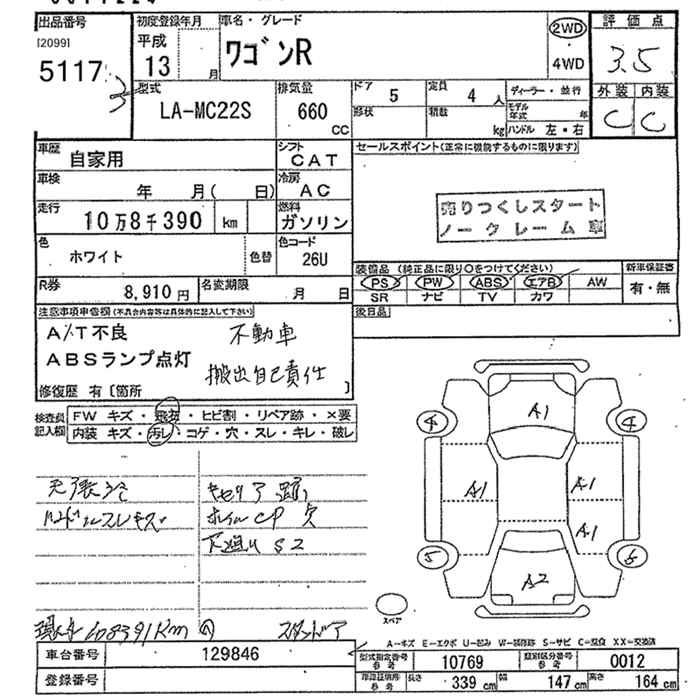 出品番号
[2099]
5117
初度登録年月
平成
13 月
車名・グレード
ワゴンR
2WD
4WD
評価点
3.5
外装 内装
C C
型式
LA-MC22S
排気量
660
CC
ドア 5
定員 4 人
形状
積載 kg
ディーラー・並行
モデル年式 年
ハンドル 左・右
車歴
自家用
シフト
CAT
セールスポイント(正常に機能するものに限ります)
売りつくしスタート
ノークレーム車
車検
年 月( 日)
冷房
AC
走行
10万8千390 km
燃料
ガソリン
色
ホワイト
色替
色コード
26U
装備品 (純正品に限り○をつけてください)
PS PW ABS エアB AW
SR ナビ TV カワ
新車保証書
有・無
R券
8,910円
名変期限
月 日
後日品
注意事項申告欄(不具合内容等は具体的に記入して下さい)
A/T不良 不動車
ABSランプ点灯
搬出自己責任
修復歴 有〔箇所 〕
検査員記入欄
FW キズ・飛石・ヒビ割・リペア跡・×要
内装 キズ・汚レ・コゲ・穴・スレ・キレ・破レ
天張汚
キャリア跡
ハンドルスレキズ
ホイルCP欠
下廻りS2
A1
4 4
A1 A1
A1
5 6
A2
スペア
現メータ108391Km
スタンドア
A=キズ E=エクボ U=凹み W=補修跡 S=サビ C=腐食 XX=交換済
車台番号
129846
型式指定番号
参考
10769
類別区分番号
参考
0012
登録番号
車検証積用
参考
長さ 339 cm
幅 147 cm
高さ 164 cm